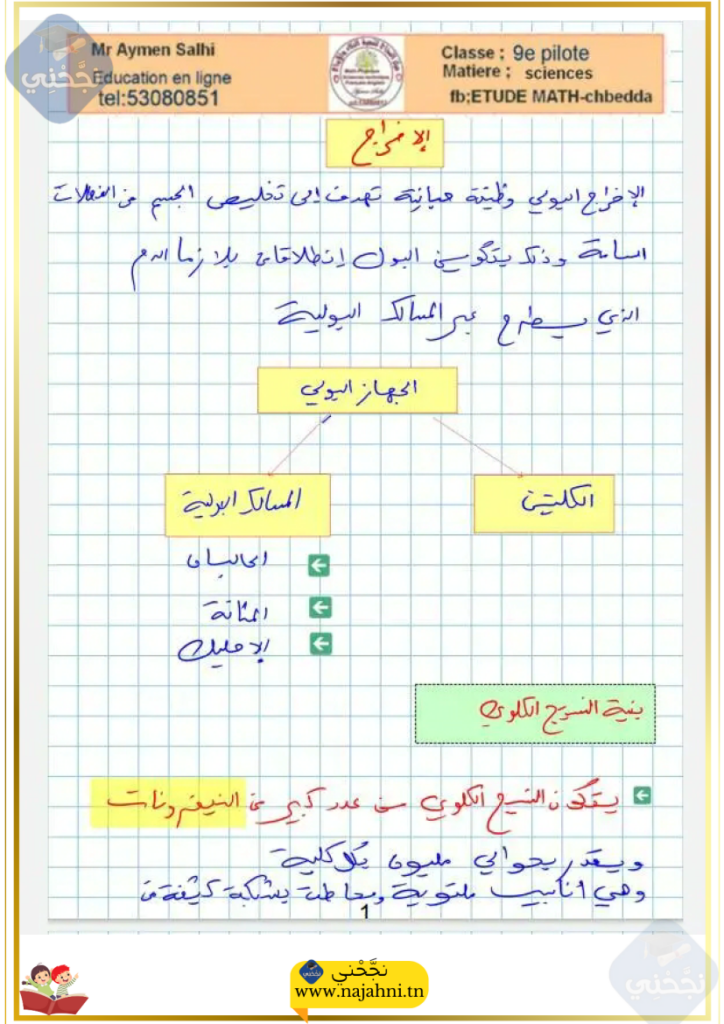 نجّحْني
Mr Aymen Salhi
Education en ligne
tel:53080851
Classe ; 9e pilote
Matiere ; sciences
fb;ETUDE MATH-chbedda
الإخراج
الإخراج البولي وظيفة حياتية تهدف إلى تخليص الجسم من الفضلات
السامة وذلك بتكوين البول إنطلاقا من بلازما الدم
الذي يطرح عبر المسالك البولية
الجهاز البولي
الكليتين
المسالك البولية
الحالبان
المثانة
الإحليل
بنية النسيج الكلوي
يتكون النسيج الكلوي من عدد كبير من النيفرونات
ويقدر بحوالي مليون بكل كلية
وهي أنابيب ملتوية ومحاطة بشبكة كثيفة من
1
نجّحْني
www.najahni.tn
نجّحْني